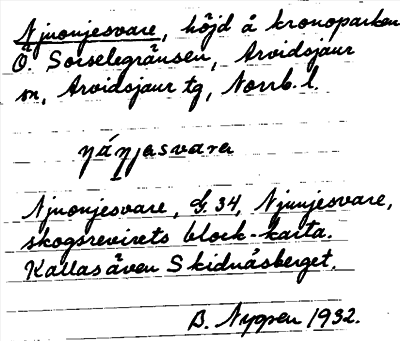 Njuonjesvare, höjd å kronoparken
Ö. Sorselegränsen, Arvidsjaur
sn, Arvidsjaur tg, Norrb. l.
Njuonjesvare, G. 34, Njunjesvare,
skogsrevirets block-karta.
Kallas även Skidnäsberget.
B. Nygren 1932.